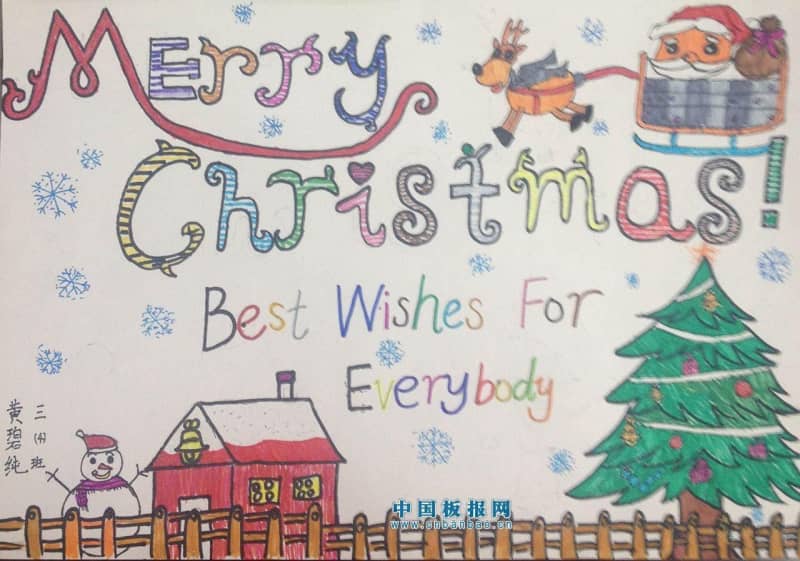 Merry
Christmas!
Best Wishes For
Everybody
三(4)班
黄碧纯
中国板报网
www.cnbanbao.cn